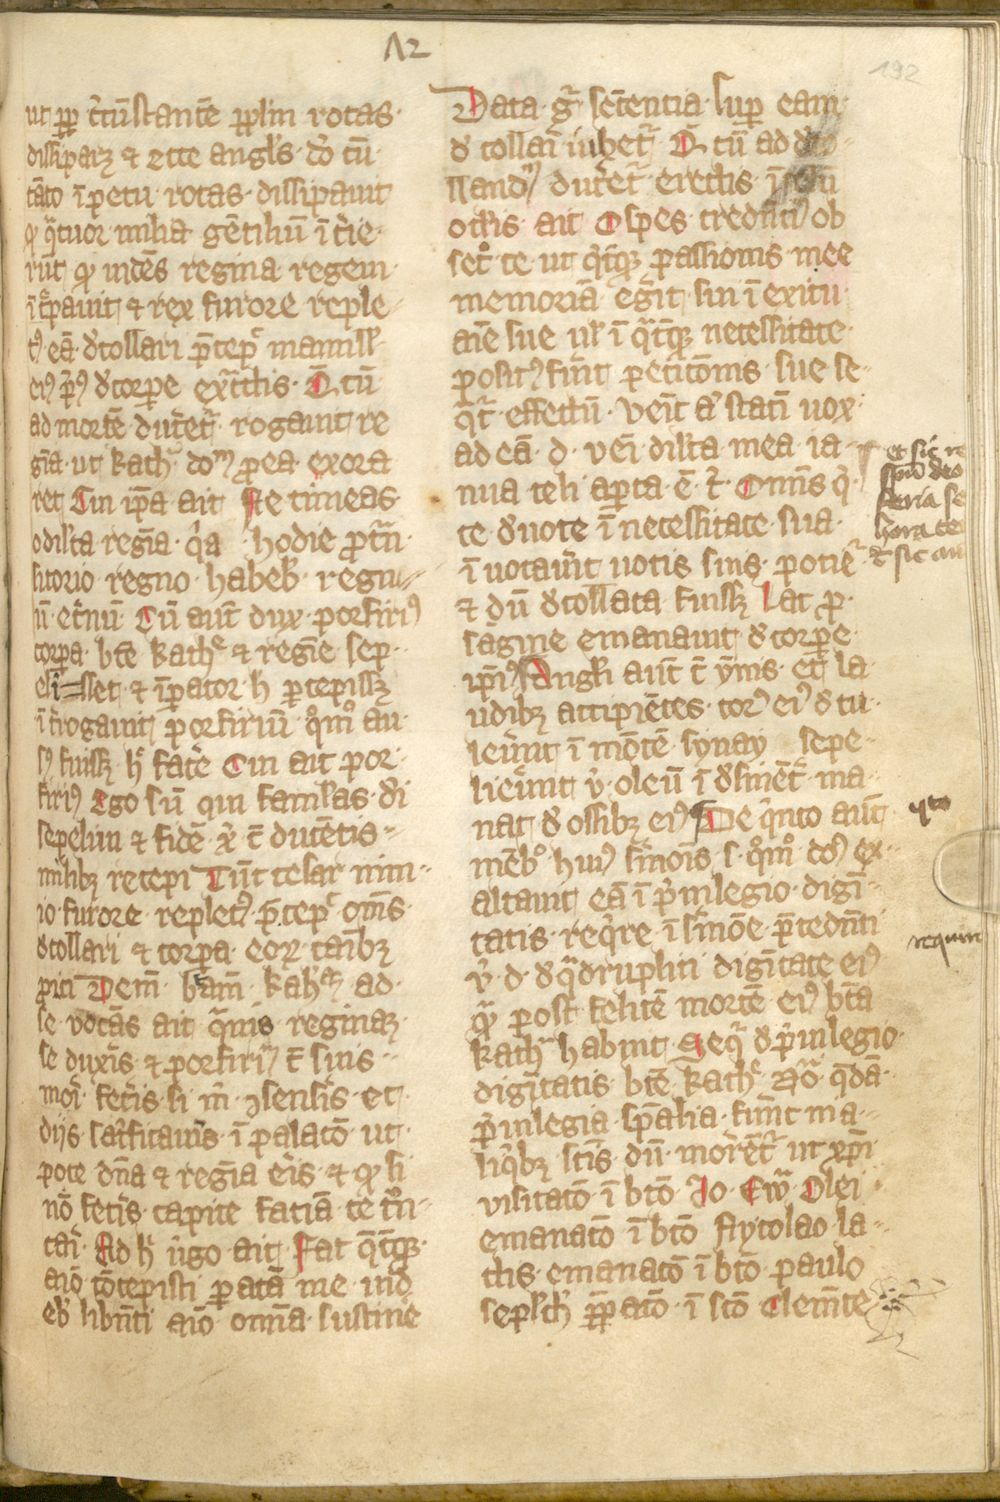 12
192
ut pp̄ cc̄ūstantē pplm rotas
dissiparꝫ ⁊ ecce angl's dō cū
tāto īpetu rotas dissipauit
ꝙ q̄tuor milia gētiliū ītīe
rūt ꝙ uidēs regina regem
īc̄pauit ⁊ rex furore reple
tꝰ eā dcollari p̄cep̄ mamill'
eiꝰ pͥꝰ dcorpe ext̄ctis Q cū
ad mortē ducēt᷑ rogauit re
gīa ut kath' dom̄ p ea exora
ret Cui ip̄a ait Ne timeas
o dilcā regīa qͥa hodie p t̄n
sitorio regno habeb' regnu
ū et̄nū Tū aut̄ dux porfiriꝰ
corpa btē kath'e ⁊ regīe sep
elisset ⁊ īpator h' pcepissꝫ
īt̄rogauit porfiriū qͦmͦ au
sꝰ fuissꝫ h' facē Cui ait por
firiꝰ Ego sū qui famlas di
sepeliui ⁊ fidē xͥ c̄ ducētis
milibꝫ recepi Tūc cesar nim
io furore repletꝰ p̄cep̄ om̄s
dcollari ⁊ corpa eoꝝ canibꝫ
pici Dem̄ bam̄ kath' ad
se vocās ait q̄uis reginaꝫ
se duxis ⁊ porfiriū c̄ suis
mori fecis si m̄ ꝯsensis et
dijs sac̄ficauis ī palacō ut
pote dn̄a ⁊ regīa eris ⁊ ꝙ si
nō fecis capite faciā te t̄n
cari Ad h' uͥgo ait Fac q̄cqͥꝫ
aīo cōcepisti patā me uid
eb' libn̄ti aīo om̄ia sustine
Data g̊ sētencia sup eam
d collaī iubet᷑ Q cū ad
duc̄et᷑ erectis ī
oclis ait O spes credn̄ciū ob
sec̄ te ut qͥcqͥꝫ passionis mee
memoriā eg̊it siu ī exitu
aīe sue ul' ī q̄cqͥꝫ necessitate
positꝰ fuit peticōnis sue se
q̄t᷑ effectū Venit a' statī uox
ad eā d veī dilcā mea ia
nua celi apta ē t̄ Omīs qͥ
te duote ī necessitate sua
ī uocauit uotis suis potie
⁊ dū dcollata fuissꝫ lac p
sagine emanauit d corpe
ipīꝰ Angl'i aut̄ c̄ ymis et la
udibꝫ accipiētes corꝰ eiꝰ d tu
lerūt ī mōtē synay sepe
lierūt v̇ oleū ī dsinēt᷑ ma
nat d ossibꝫ eiꝰ De qͥnto aut̄
mēbͦ huiꝰ sīmoīs s qͦmͦ dꝰ ex
altauit eā ī pͥuilegio digī
tatis reqͥre ī sīmōe p̄cedn̄ti
v̇ d dq̄drupliti digītate eiꝰ
qͣ post felicē mortē eiꝰ btā
kath' habuit Seqͥ d pͥuilegio
digītatis btē kath' Nō q̄dā
pͥuilegia sp̄alia fuūt īn a
liqͥbꝫ sctis dū morēt᷑ ut xpi
visitatō ī btō Io Ew̄ Olei
emanatō ī btō Nycolao la
ctis emanatō ī btō paulo
sepl'ch' ppatō ī scō Clemēte
et sic re
hora